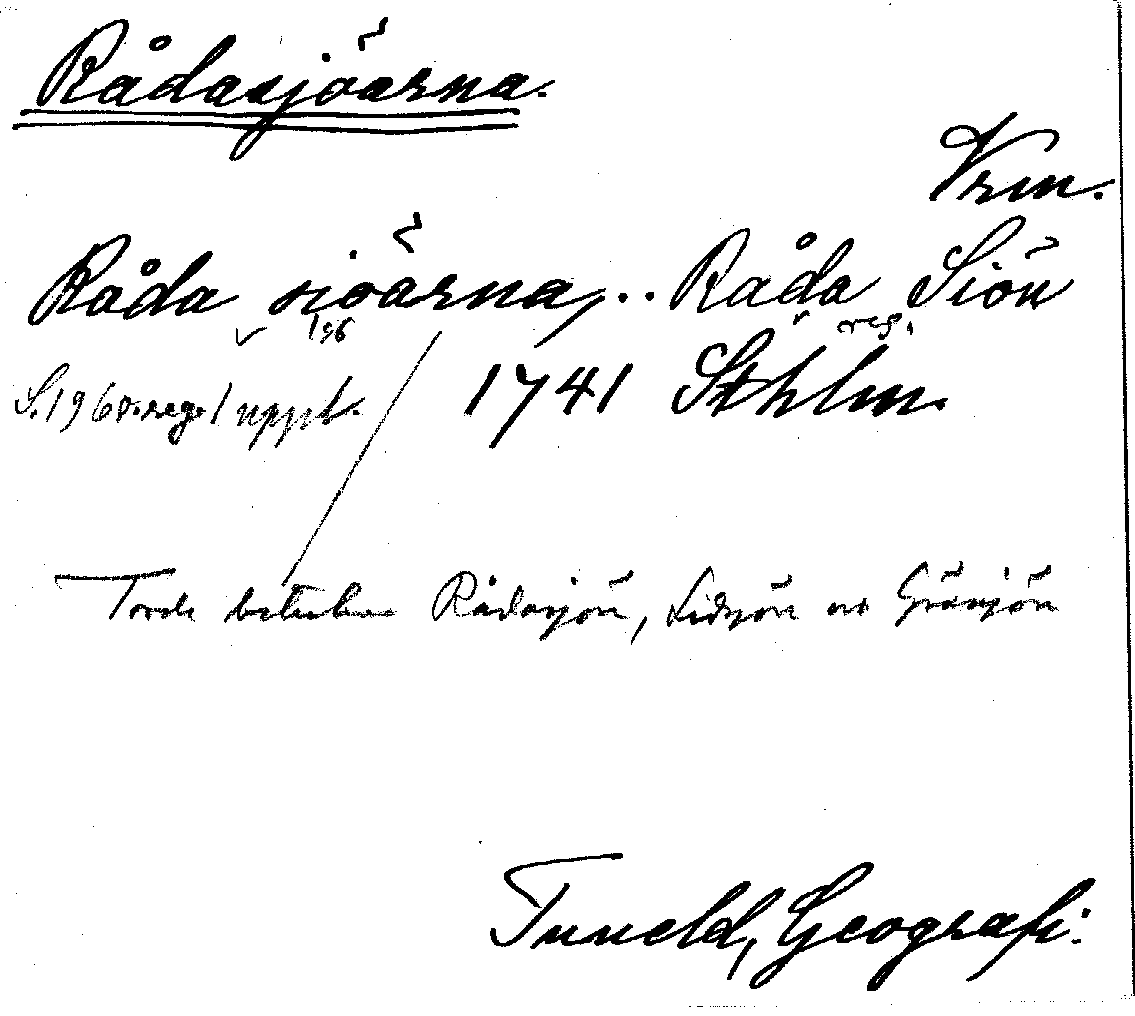 Rådasjöarna.
Vrm.
Råda siöarna, .. Råda Siön
196 reg.
S. 196 o. reg. 1 uppl. / 1741 Sthlm.
Torde beteckna Rådasjön, Lidsjön och Gransjön
Tuneld, Geografi.